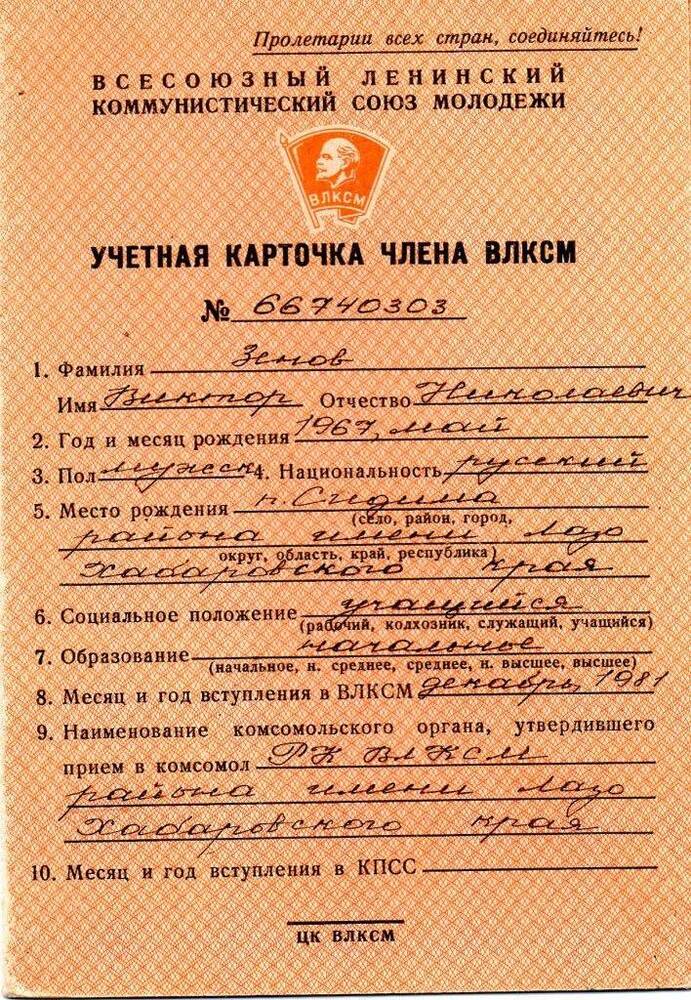 Пролетарии всех стран, соединяйтесь!
ВСЕСОЮЗНЫЙ ЛЕНИНСКИЙ
КОММУНИСТИЧЕСКИЙ СОЮЗ МОЛОДЕЖИ
ВЛКСМ
УЧЕТНАЯ КАРТОЧКА ЧЛЕНА ВЛКСМ
№ 66740303
1. Фамилия Зенов
Имя Виктор Отчество Николаевич
2. Год и месяц рождения 1967, май
3. Пол мужск 4. Национальность русский
5. Место рождения п. Сидима
(село, район, город,
района имени Лазо
округ, область, край, республика)
Хабаровского края
6. Социальное положение учащийся
(рабочий, колхозник, служащий, учащийся)
7. Образование начальное
(начальное, н. среднее, среднее, н. высшее, высшее)
8. Месяц и год вступления в ВЛКСМ декабрь, 1981
9. Наименование комсомольского органа, утвердившего
прием в комсомол РК ВЛКСМ
района имени Лазо
Хабаровского края
10. Месяц и год вступления в КПСС
ЦК ВЛКСМ